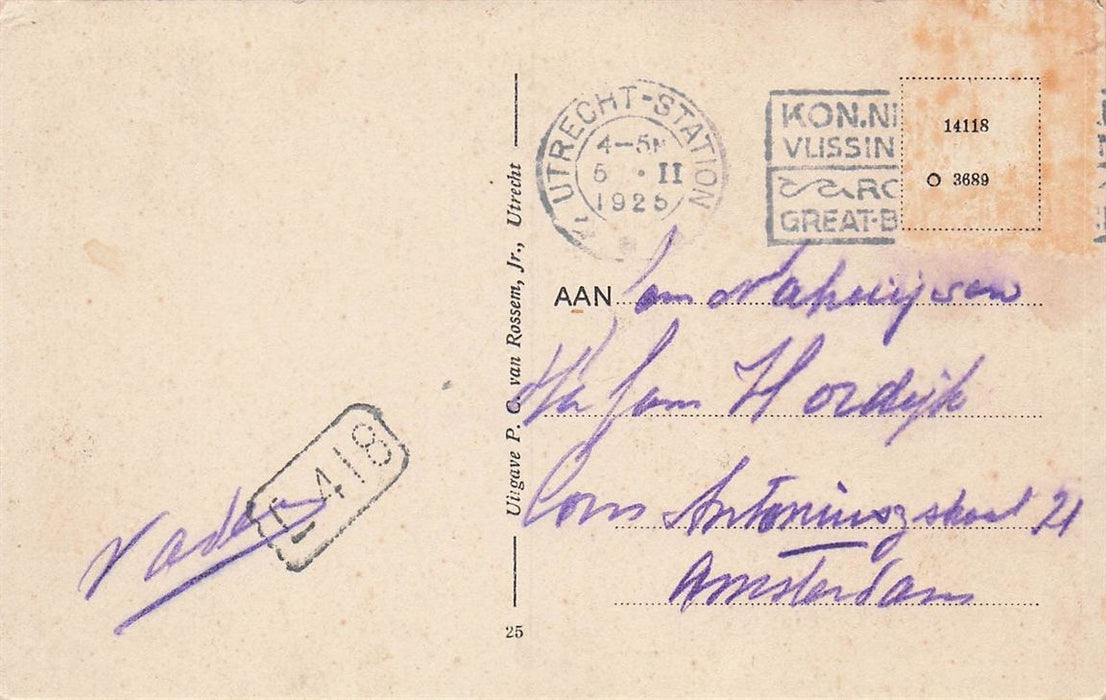 UTRECHT-STATION
4-5N
5 · II
1925
KON.NE
VLISSIN
RO
GREAT-B
14118
O 3689
AAN Jan
Jan Hordijk
Corns Antoniuszstraat 21
Amsterdam
Vader
L 418
Uitgave P. C. van Rossem, Jr., Utrecht
25